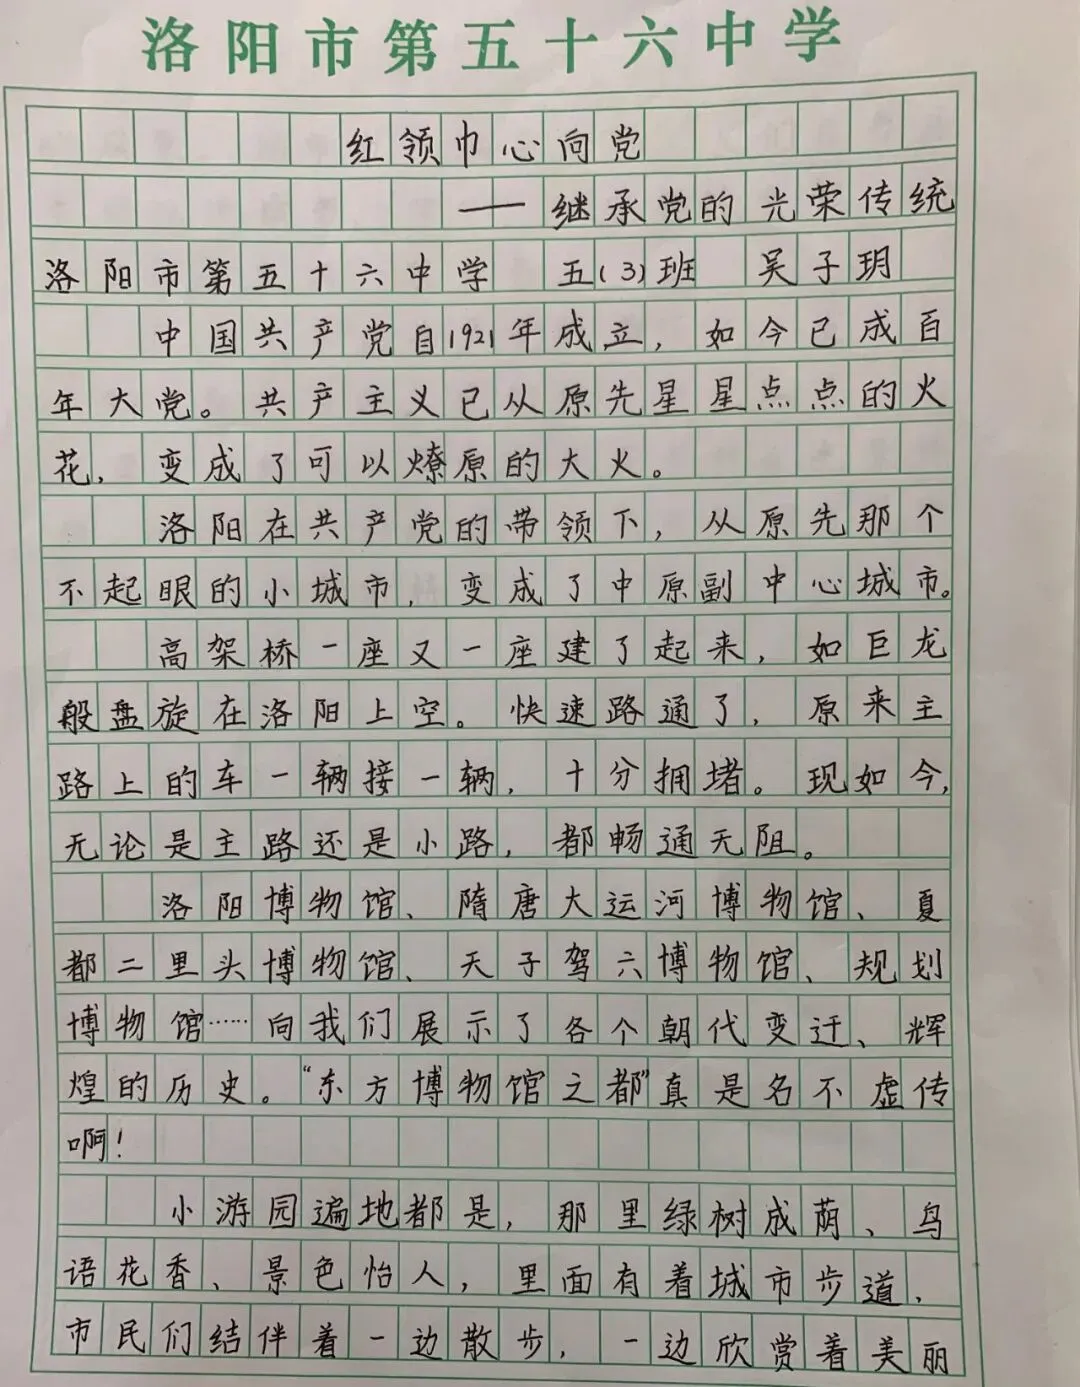 洛阳市第五十六中学
红领巾心向党
——继承党的光荣传统
洛阳市第五十六中学 五(3)班 吴子玥
中国共产党自1921年成立，如今已成百
年大党。共产主义已从原先星星点点的火
花，变成了可以燎原的大火。
洛阳在共产党的带领下，从原先那个
不起眼的小城市，变成了中原副中心城市。
高架桥一座又一座建了起来，如巨龙
般盘旋在洛阳上空。快速路通了，原来主
路上的车一辆接一辆，十分拥堵。现如今，
无论是主路还是小路，都畅通无阻。
洛阳博物馆、隋唐大运河博物馆、夏
都二里头博物馆、天子驾六博物馆、规划
博物馆……向我们展示了各个朝代变迁、辉
煌的历史。“东方博物馆之都”真是名不虚传
啊！
小游园遍地都是，那里绿树成荫、鸟
语花香、景色怡人，里面有着城市步道，
市民们结伴着一边散步，一边欣赏着美丽